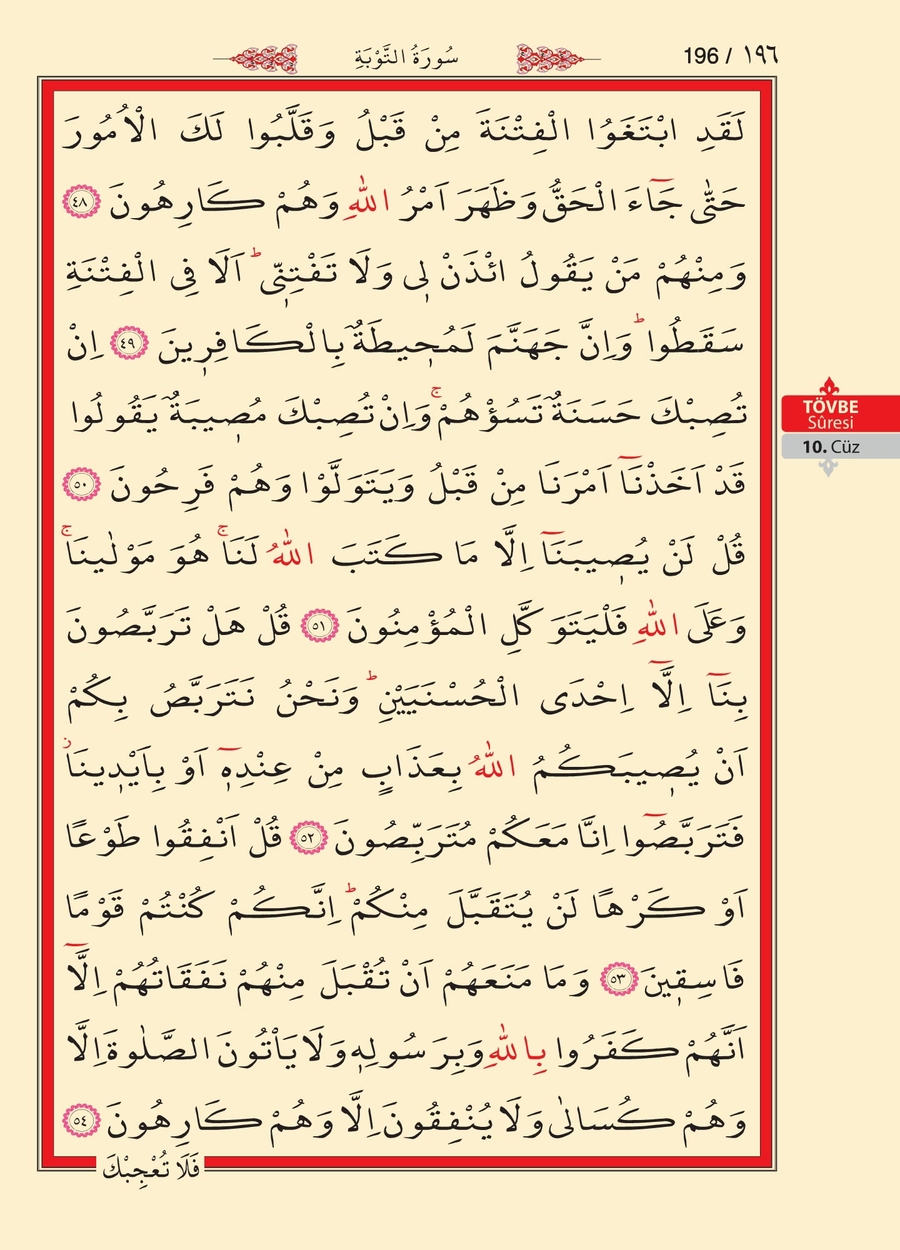 سُورَةُ التَّوْبَةِ
196 / ١٩٦
لَقَدِ ابْتَغَوُا الْفِتْنَةَ مِنْ قَبْلُ وَقَلَّبُوا لَكَ الْاُمُورَ
حَتّٰى جَٓاءَ الْحَقُّ وَظَهَرَ اَمْرُ اللّٰهِ وَهُمْ كَارِهُونَ ﴿٤٨﴾
وَمِنْهُمْ مَنْ يَقُولُ ائْذَنْ ل۪ى وَلَا تَفْتِنّ۪ىۜ اَلَا فِى الْفِتْنَةِ
سَقَطُواۜ وَاِنَّ جَهَنَّمَ لَمُح۪يطَةٌ بِالْكَافِر۪ينَ ﴿٤٩﴾ اِنْ
تُصِبْكَ حَسَنَةٌ تَسُؤْهُمْۚ وَاِنْ تُصِبْكَ مُص۪يبَةٌ يَقُولُوا
قَدْ اَخَذْنَٓا اَمْرَنَا مِنْ قَبْلُ وَيَتَوَلَّوْا وَهُمْ فَرِحُونَ ﴿٥٠﴾
قُلْ لَنْ يُص۪يبَنَٓا اِلَّا مَا كَتَبَ اللّٰهُ لَنَاۚ هُوَ مَوْلٰينَاۚ
وَعَلَى اللّٰهِ فَلْيَتَوَكَّلِ الْمُؤْمِنُونَ ﴿٥١﴾ قُلْ هَلْ تَرَبَّصُونَ
بِنَٓا اِلَّٓا اِحْدَى الْحُسْنَيَيْنِۜ وَنَحْنُ نَتَرَبَّصُ بِكُمْ
اَنْ يُص۪يبَكُمُ اللّٰهُ بِعَذَابٍ مِنْ عِنْدِه۪ٓ اَوْ بِاَيْد۪ينَاۘ
فَتَرَبَّصُٓوا اِنَّا مَعَكُمْ مُتَرَبِّصُونَ ﴿٥٢﴾ قُلْ اَنْفِقُوا طَوْعًا
اَوْ كَرْهًا لَنْ يُتَقَبَّلَ مِنْكُمْۜ اِنَّكُمْ كُنْتُمْ قَوْمًا
فَاسِق۪ينَ ﴿٥٣﴾ وَمَا مَنَعَهُمْ اَنْ تُقْبَلَ مِنْهُمْ نَفَقَاتُهُمْ اِلَّٓا
اَنَّهُمْ كَفَرُوا بِاللّٰهِ وَبِرَسُولِه۪ وَلَا يَأْتُونَ الصَّلٰوةَ اِلَّا
وَهُمْ كُسَالٰى وَلَا يُنْفِقُونَ اِلَّا وَهُمْ كَارِهُونَ ﴿٥٤﴾
فَلَا تُعْجِبْكَ
TÖVBE
Sûresi
10. Cüz